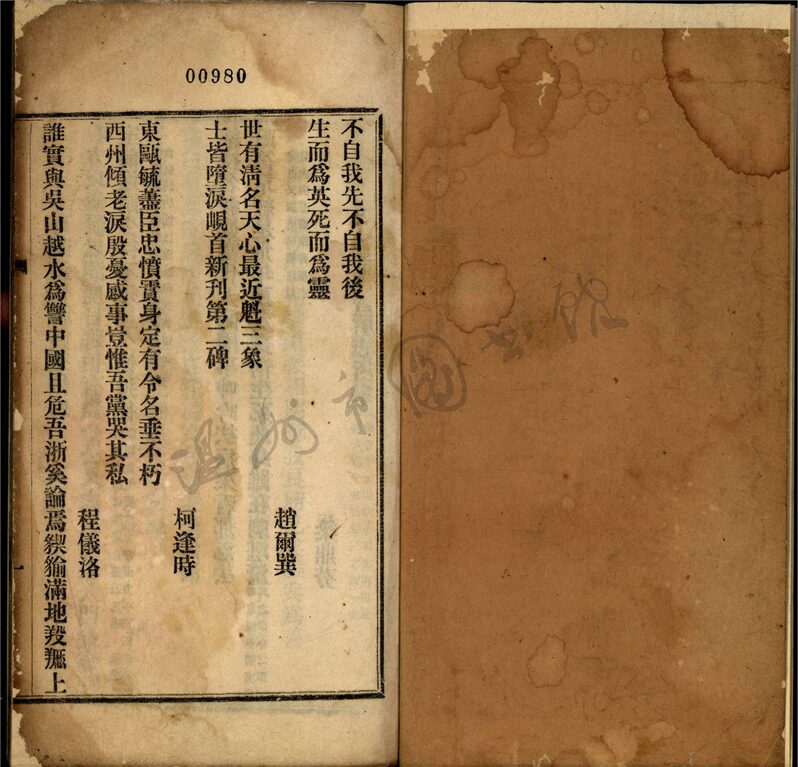 00980
不自我先不自我後
生而爲英死而爲靈
趙爾巽
世有淸名天心最近魁三象
士皆墮淚峴首新刊第二碑
柯逢時
東甌毓藎臣忠憤實身定有令名垂不朽
西州傾老淚殷憂感事豈惟吾黨哭其私
程儀洛
誰實與吳山越水爲讐中國且危吾浙奚論焉猰㺄滿地羖䍽上
溫州市圖書館